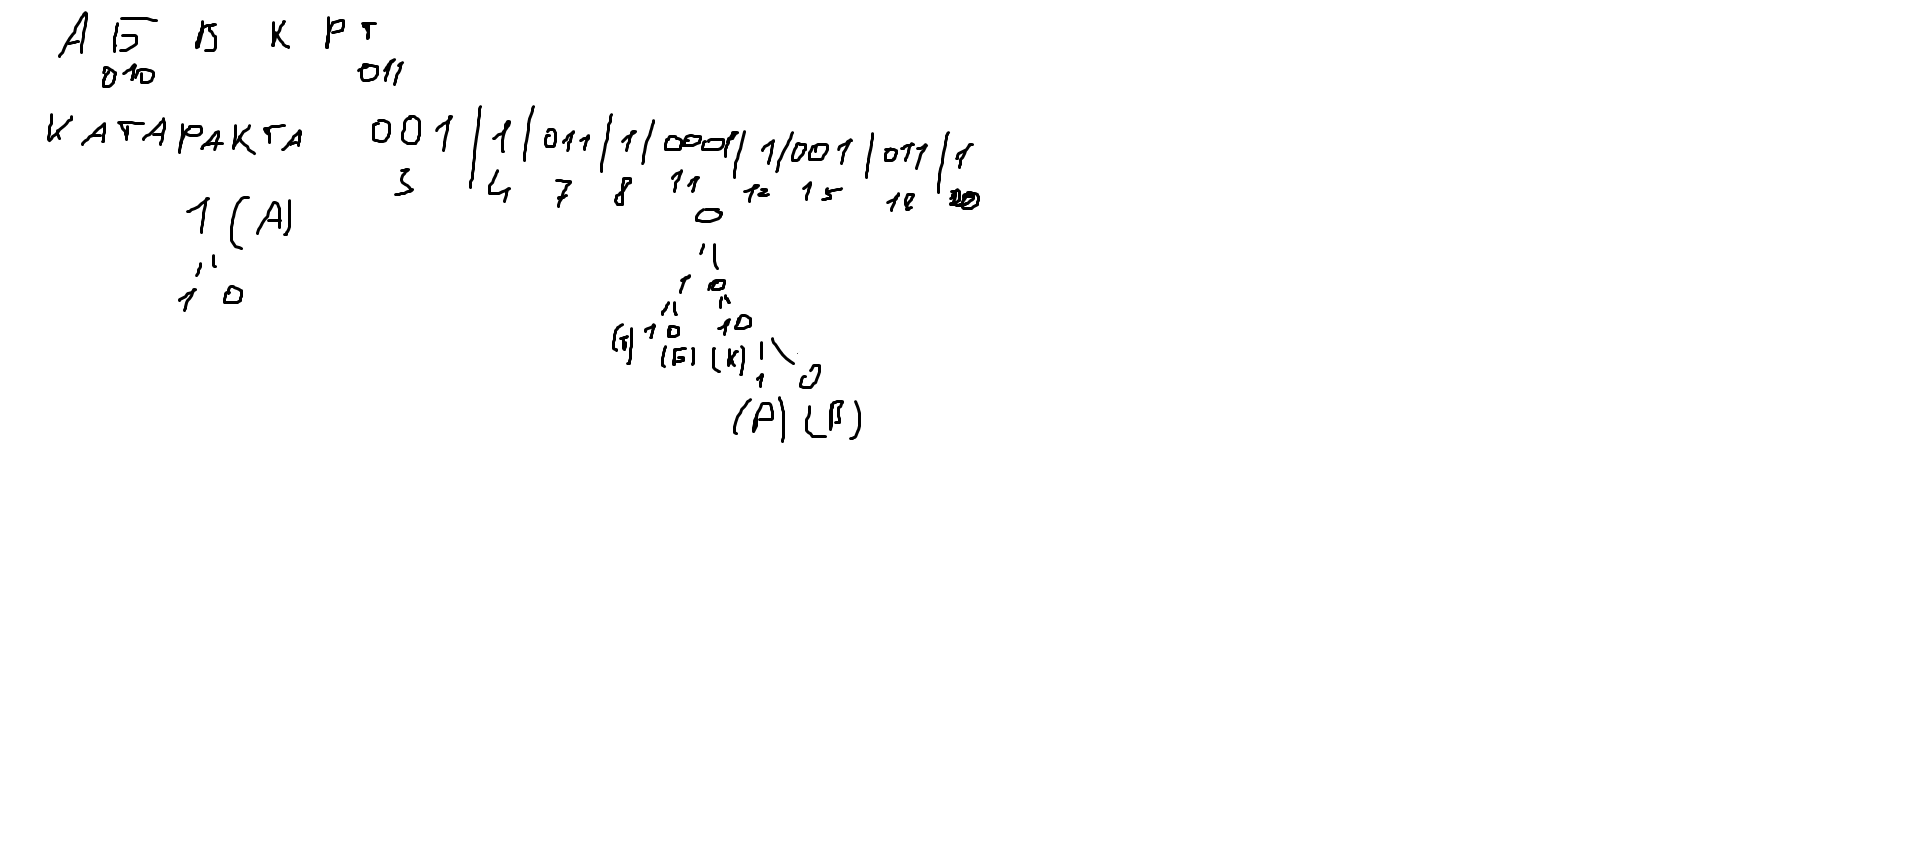 А Б В К Р Т
010 011
КАТАРАКТА 001|1|011|1|0001|1/001|011|1
3 4 7 8 11 12 15 18 20
1 (А) 0
1 0 1 0
(Т) 1 0 1 0
(Б) (К)
1 0
(Р) (В)